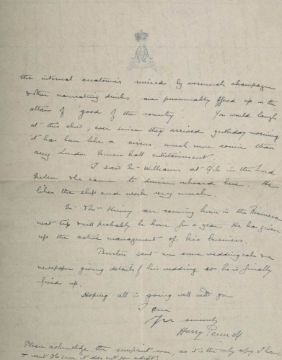 the internal anatomies ruined by so much champagne
& other nauseating drinks are presumably offered up on the
altar of good of the country. You would laugh
at this ship, ever since they arrived yesterday morning
it has been like a circus, much more comic than
any London Music hall entertainment.
I said to Williams at Gib in the Lord
Nelson who came to dinner aboard here. He
likes the ship and work very much.
are coming home in the
next trip & will probably be home for a year. He has given
up the active management of his business.
sent me some wedding cake & a
newspaper giving details of his wedding so he's finally
fixed up.
Hoping all is going well with you
I am
Yrs sincerely
Harry Pennell
Please acknowledge the as it is the only copy I have